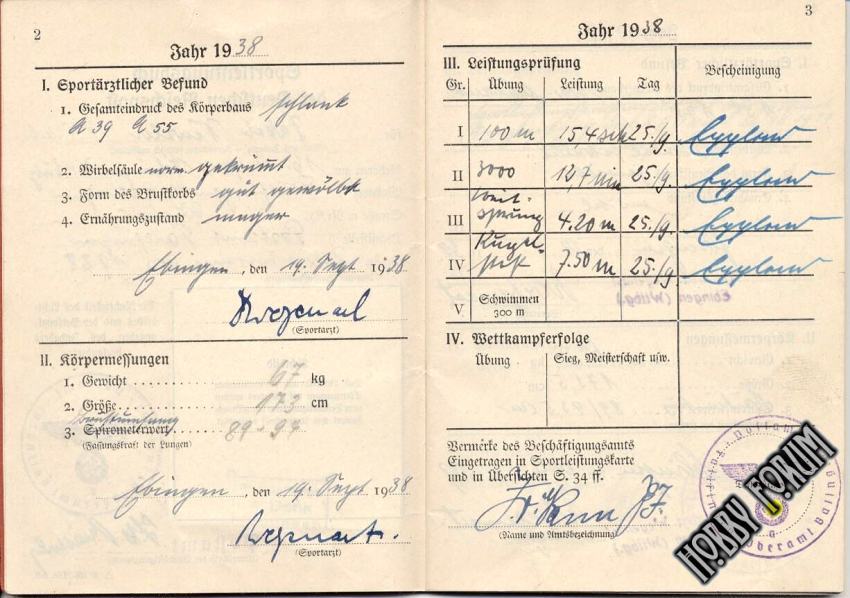 2
Jahr 1938
I. Sportärztlicher Befund
1. Gesamteindruck des Körperbaus schlank
A 39 G 55
2. Wirbelsäule norm. gekrümmt
3. Form des Brustkorbs gut gewölbt
4. Ernährungszustand mager
Ebingen, den 19. Sept 1938
(Sportarzt)
II. Körpermessungen
1. Gewicht 67 kg
2. Größe 173 cm
3. Spirometerwert 89-94
(Fassungskraft der Lungen)
Ebingen, den 19. Sept 1938
(Sportarzt)
3
Jahr 1938
III. Leistungsprüfung
Gr. Übung Leistung Tag Bescheinigung
I 100 m 15 4 sek 25./9.
II 3000 12,7 min 25./9.
III Weitsprung 4.20 m 25./9.
IV Kugelstoß 7.50 m 25./9.
Ebingen (Wttbg.)
V. Schwimmen
300 m
IV. Wettkampferfolge
Übung Sieg, Meisterschaft usw.
Vermerke des Beschäftigungsamts
Eingetragen in Sportleistungskarte
und in Übersichten S. 34 ff.
(Name und Amtsbezeichnung)
HOBBY FORUM